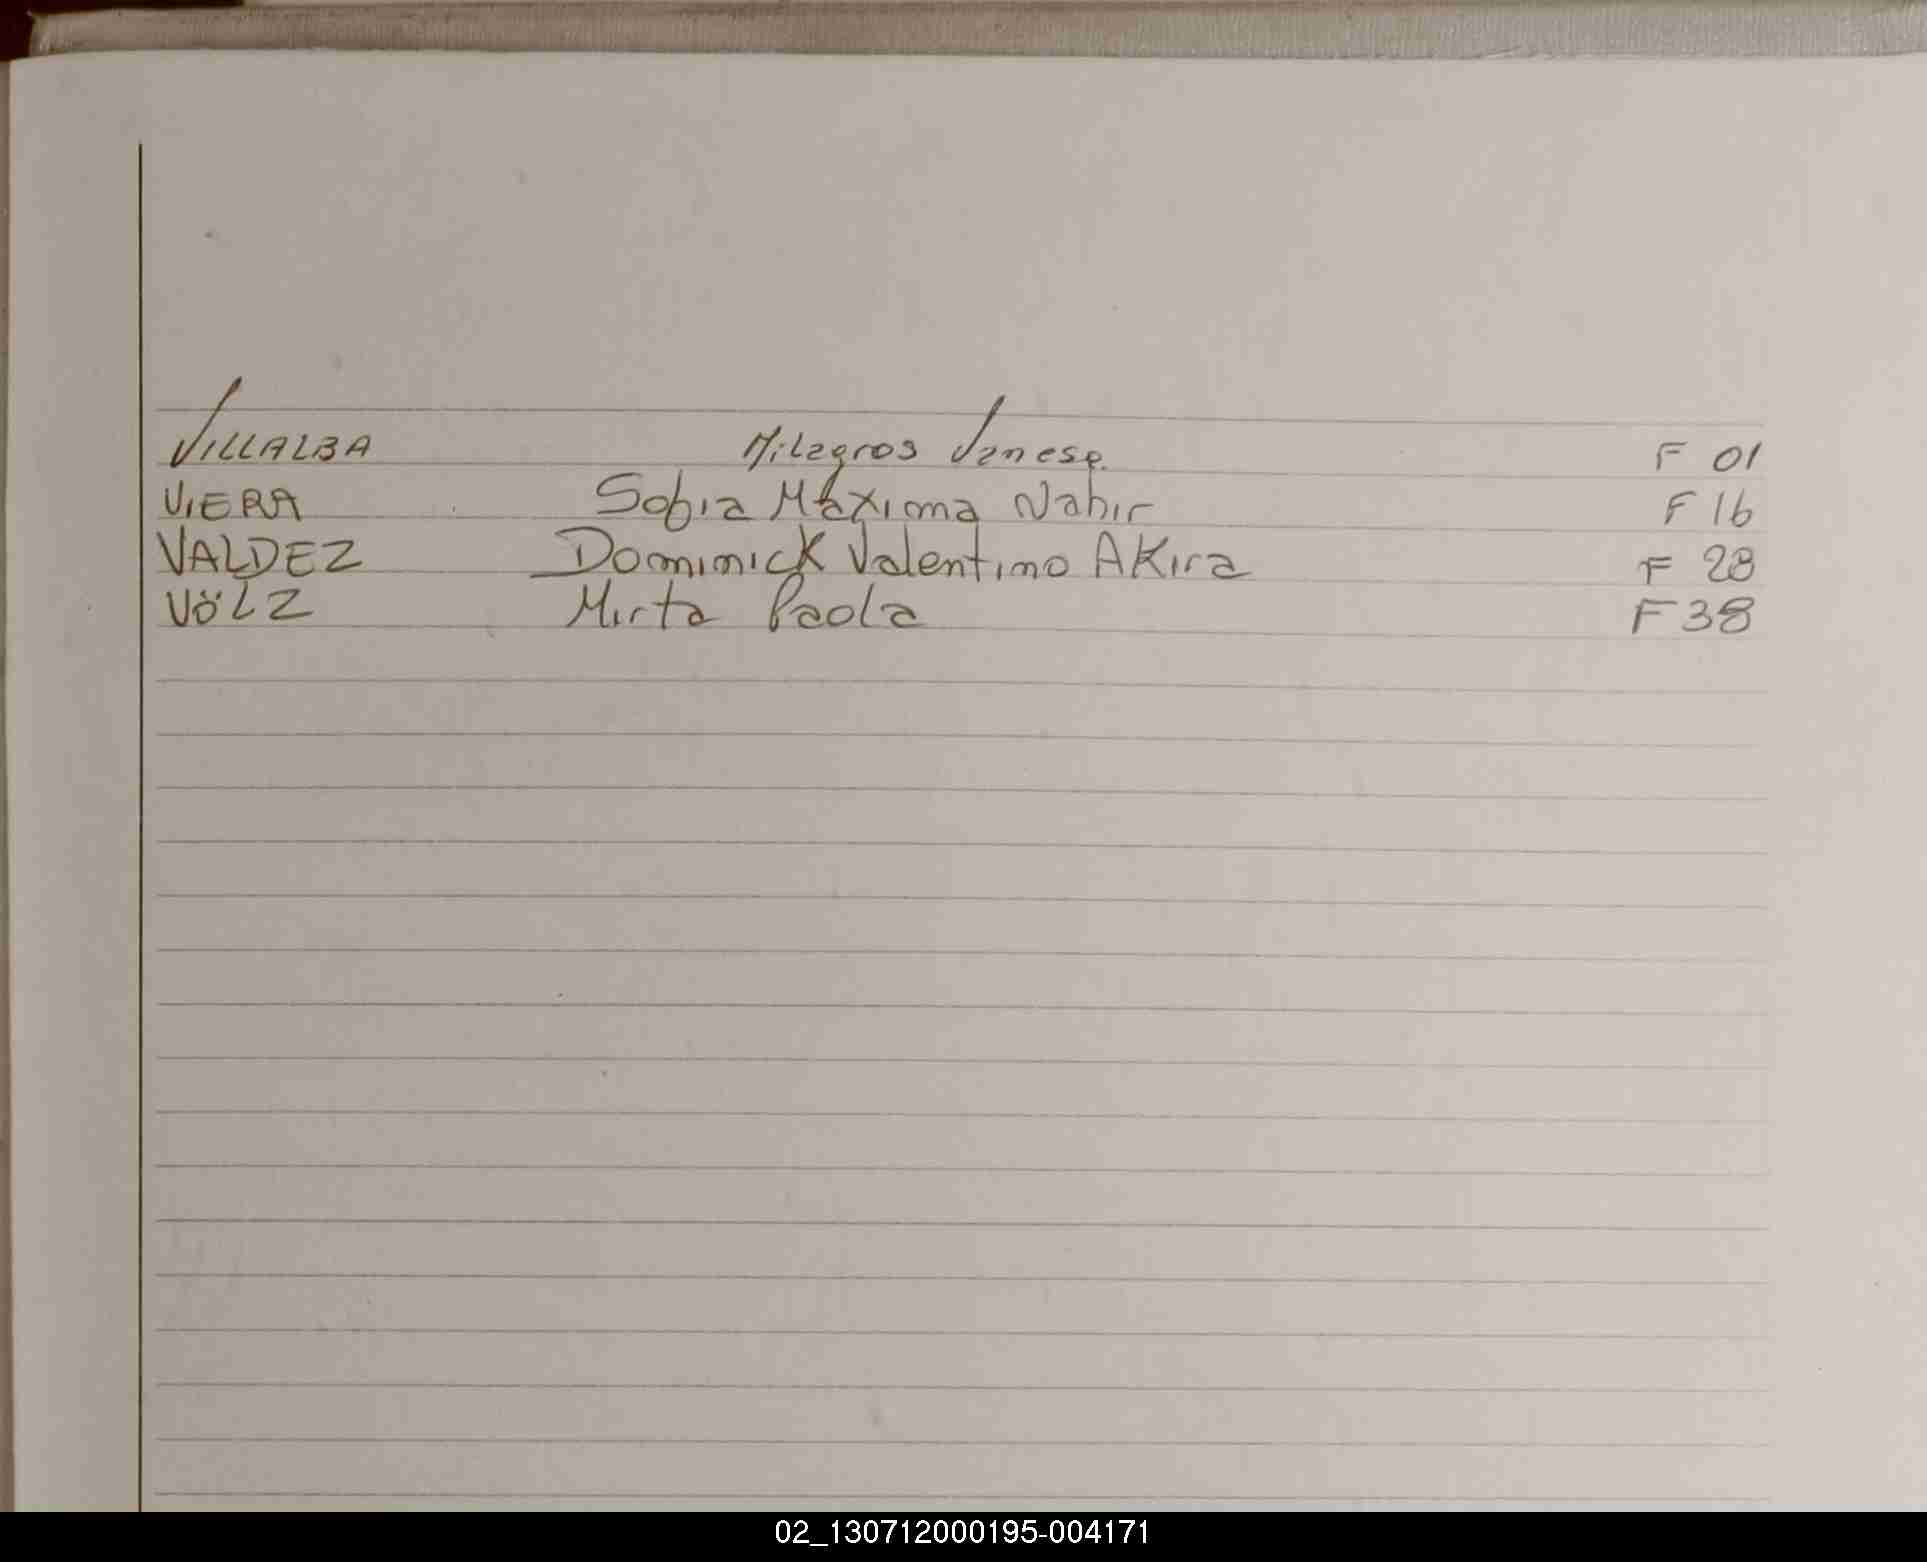 VILLALBA Milagros Vanese. F 01
VIERA Sofia Máxima Nahir F 16
VALDEZ Dominick Valentino Akira F 28
VÖLZ Mirta Paola F 38
02_130712000195-004171